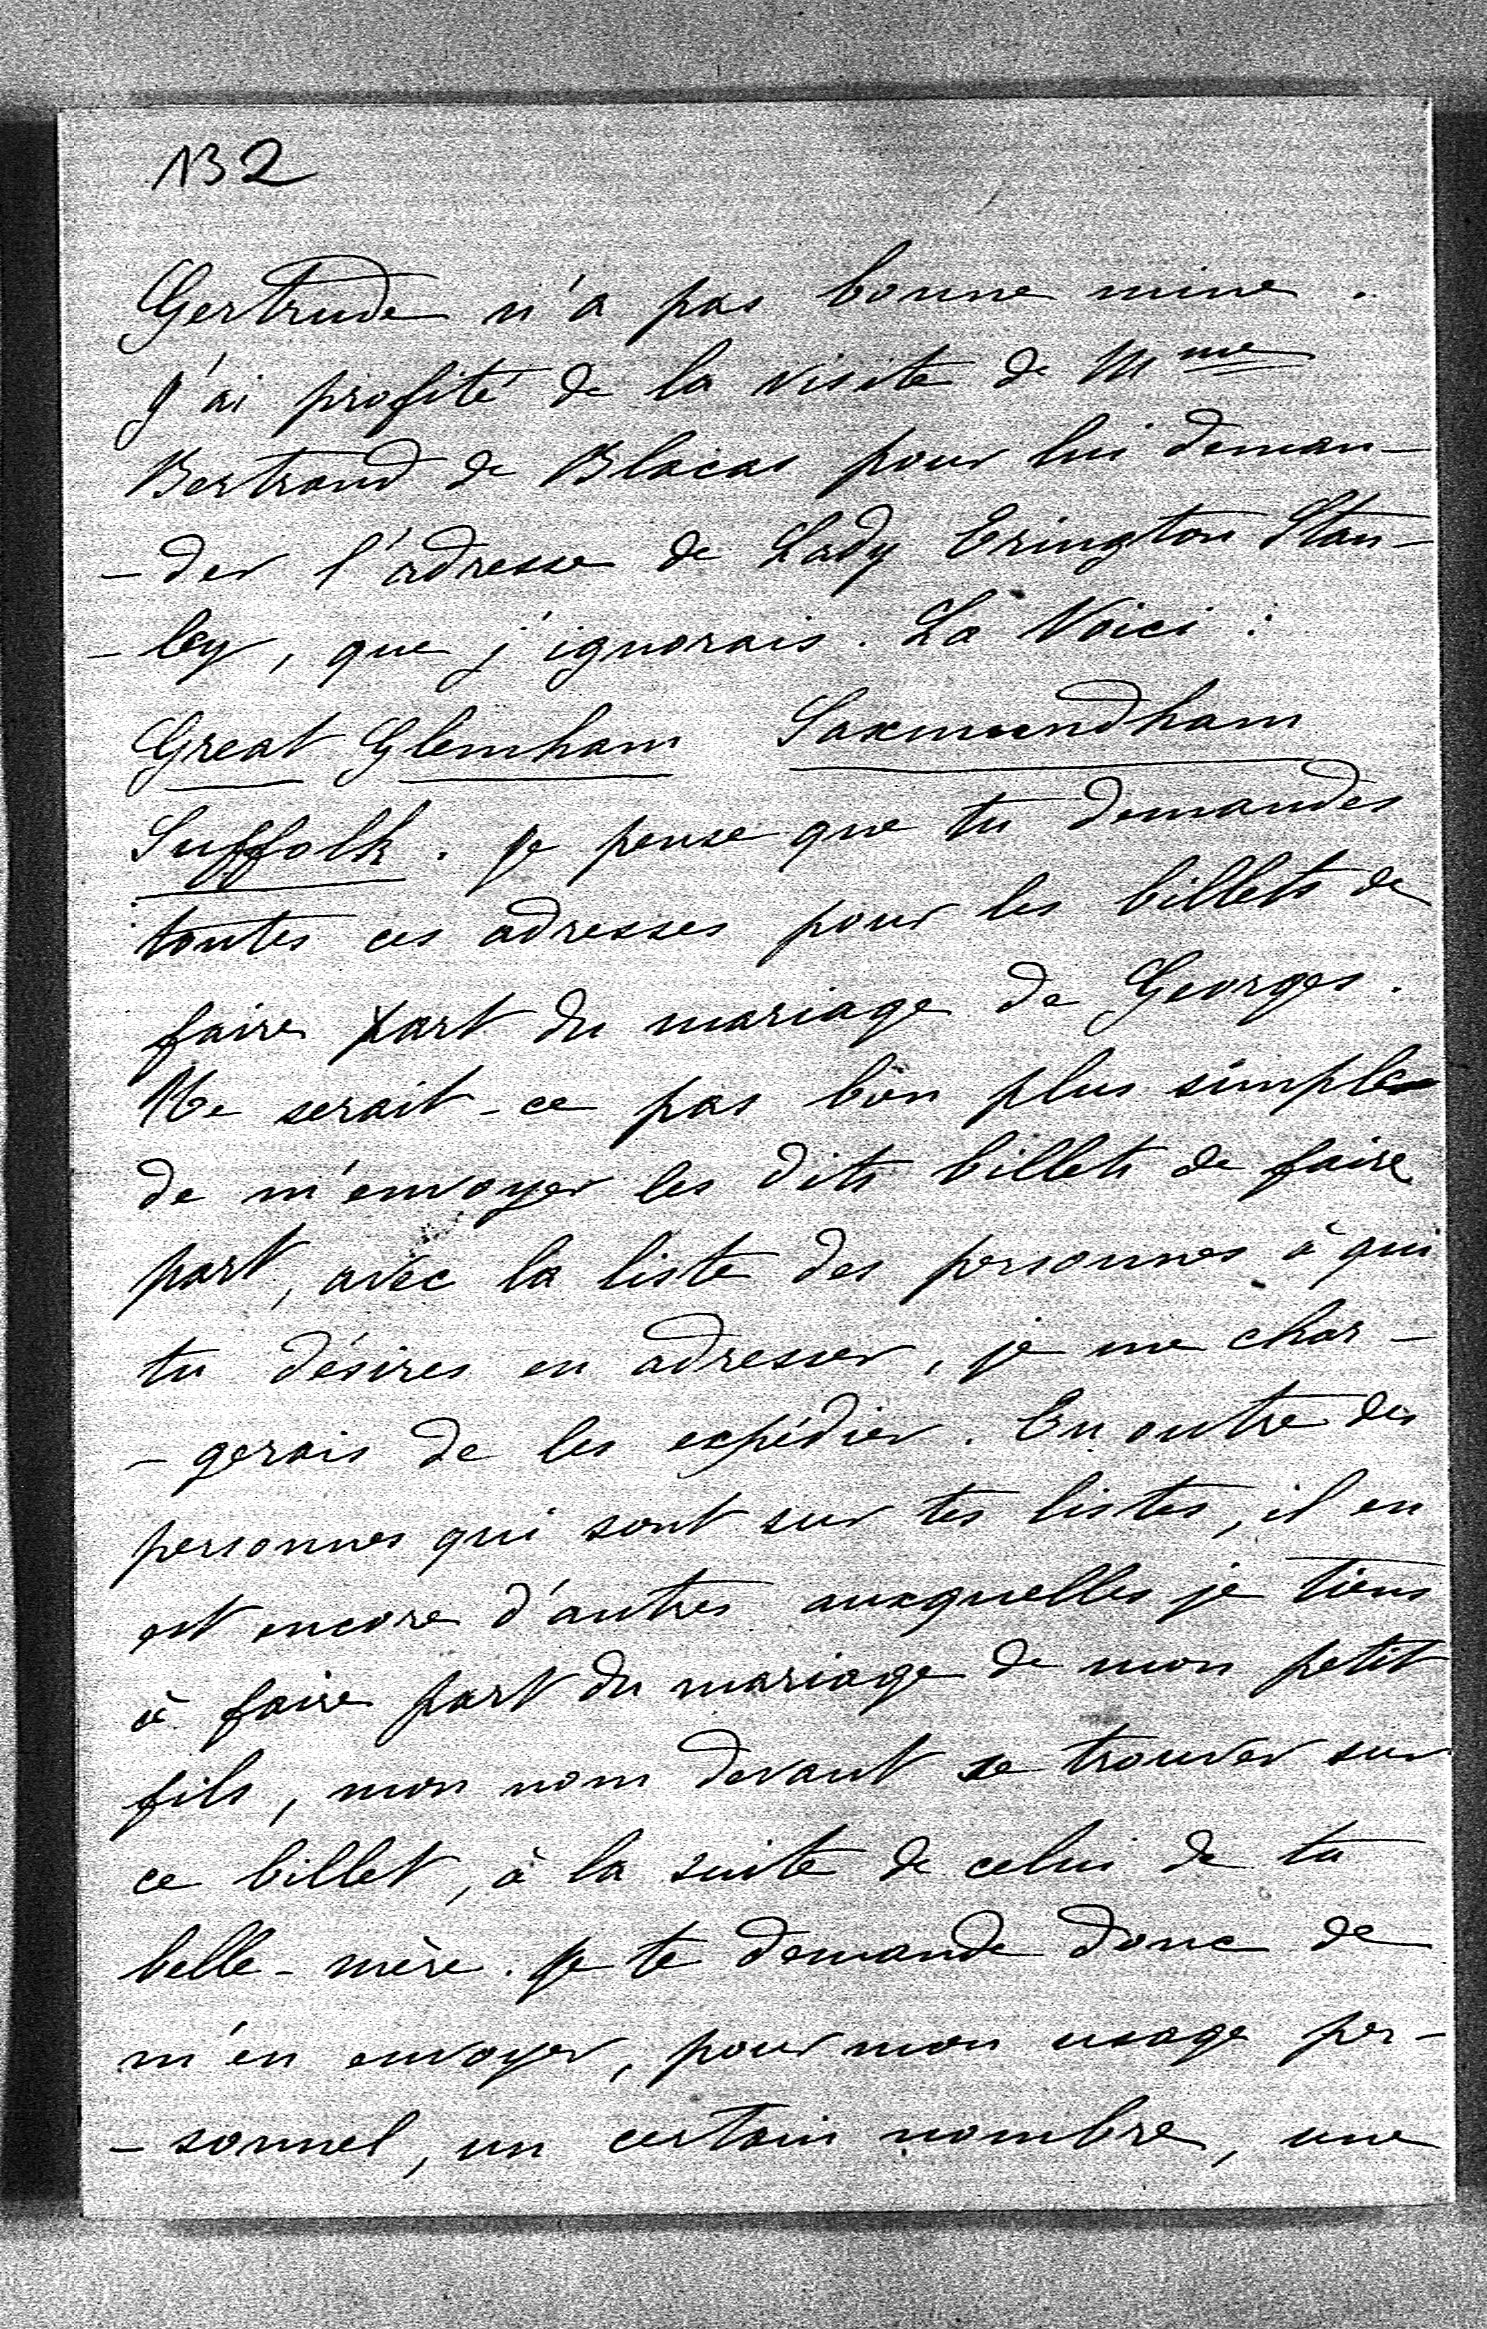 132
Gertrude n'a pas bonne mine.
J'ai profité de la visite de Mme
Bertrand de Blacas pour lui deman-
-der l'adresse de Lady Erington Stan-
-ley, que j'ignorais. La Voici :
Great Glemham Saxmundham
Suffolk. Je pense que tu demandes
toutes ces adresses pour les billets de
faire part du mariage de Georges.
Ne serait-ce pas bien plus simple
de m'envoyer les dits billets de faire
part, avec la liste des personnes à qui
tu désires en adresser, je me char-
-gerais de les expédier. En outre des
personnes qui sont sur tes listes, il en
est encore d'autres auxquelles je tiens
à faire part du mariage de mon petit
fils, mon nom devant se trouver sur
ce billet, à la suite de celui de ta
belle-mère. Je te demande donc de
m'en envoyer, pour mon usage per-
-sonnel, un certain nombre, une